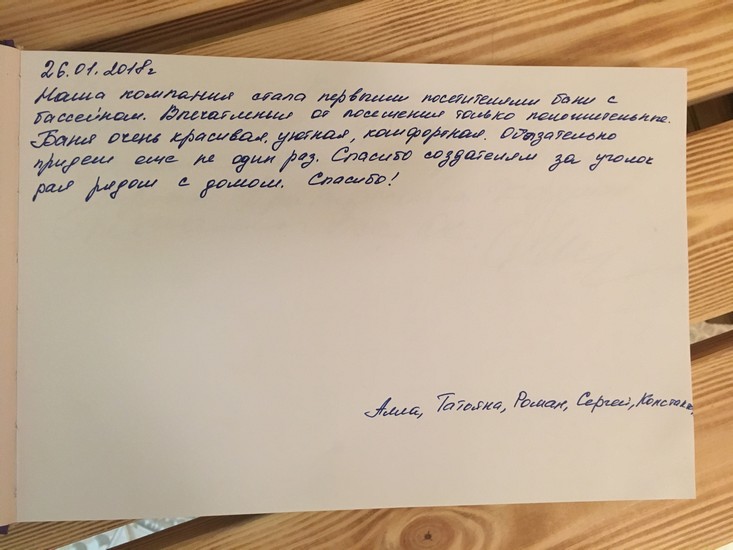 26.01.2018г
Наша компания стала первыми посетителями бани с
бассейном. Впечатления от посещения только положительные.
Баня очень красивая, уютная, комфортная. Обязательно
придем еще не один раз. Спасибо создателям за уголок
рая рядом с домом. Спасибо!
Алла, Татьяна, Роман, Сергей,